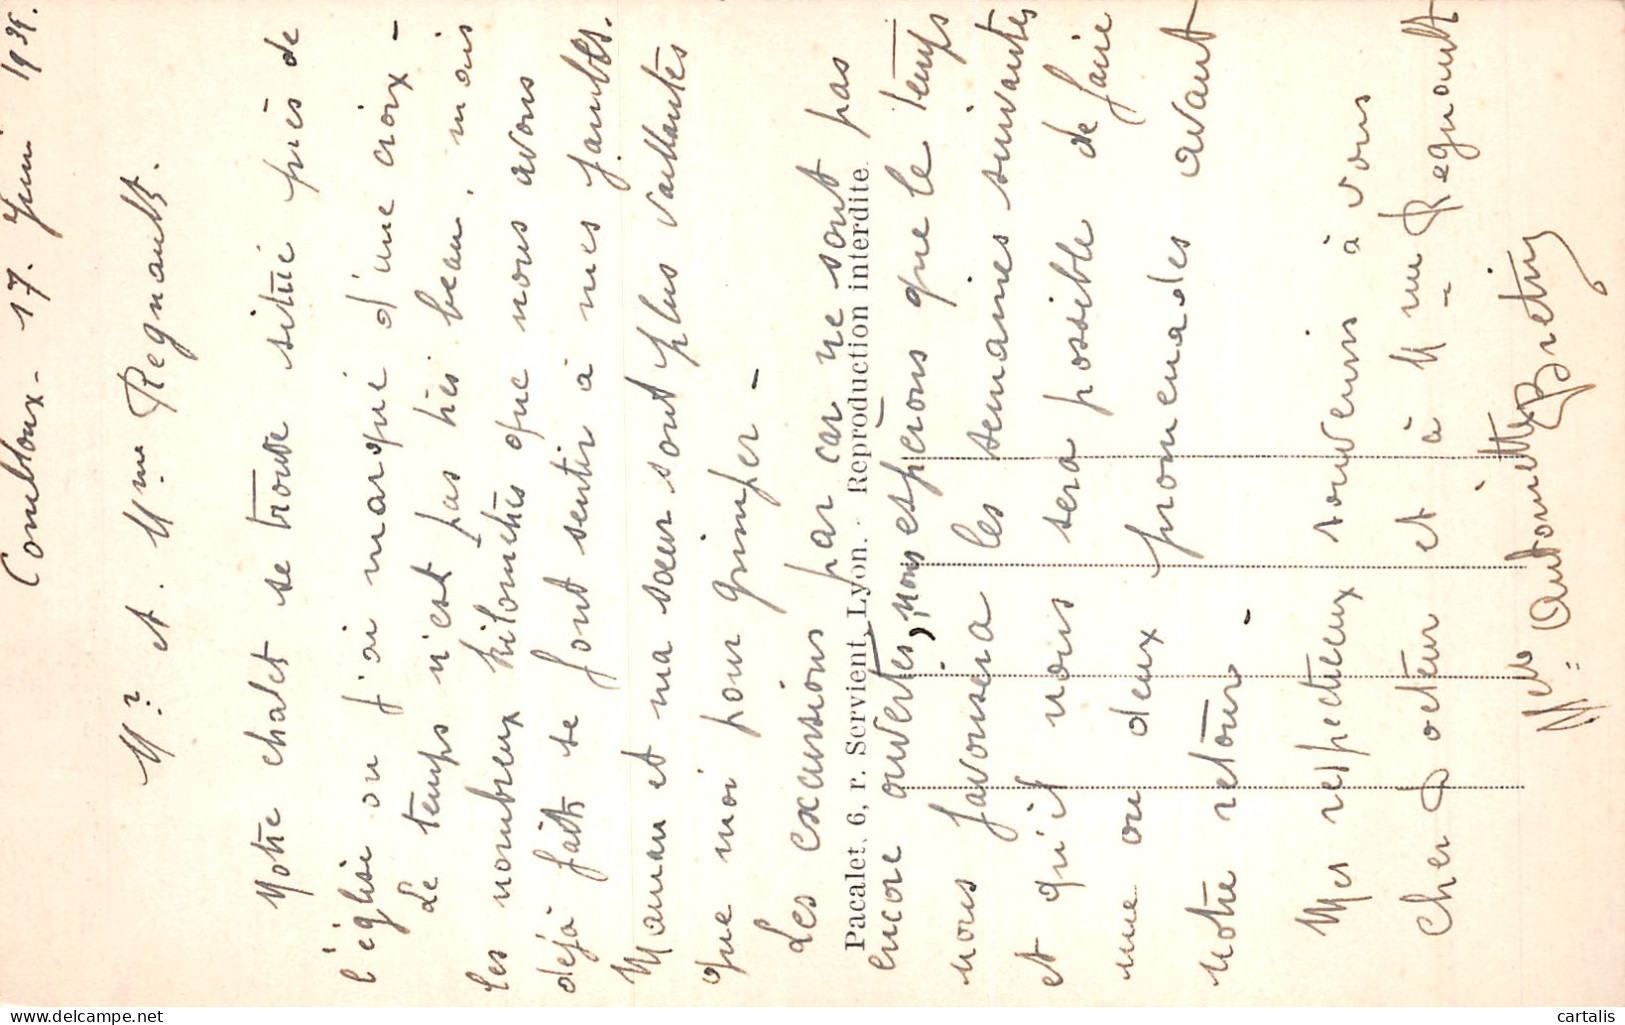 Combloux - 17. Juin 1935.
Mr et. Mme Regnault.
Notre chalet se trouve situé près de
l'église ou j'ai marqué d'une croix -
Le temps n'est pas très beau, mais
les nombreux kilomètres que nous avons
déjà faits se font sentir à mes jambes.
Maman et ma sœur sont plus vaillantes
que moi pour grimper -
Les excursions par car ne sont pas
encore ouvertes, nous espérons que le temps
nous favorisera les semaines suivantes
et qu'il nous sera possible de faire
une ou deux promenades avant
notre retour -
Mes respectueux souvenirs à vous
Cher Docteur et à Mme Regnault
Melle Antoinette Bretin
Pacalet, 6, r. Servient, Lyon. - Reproduction interdite.
www.delcampe.net
cartalis